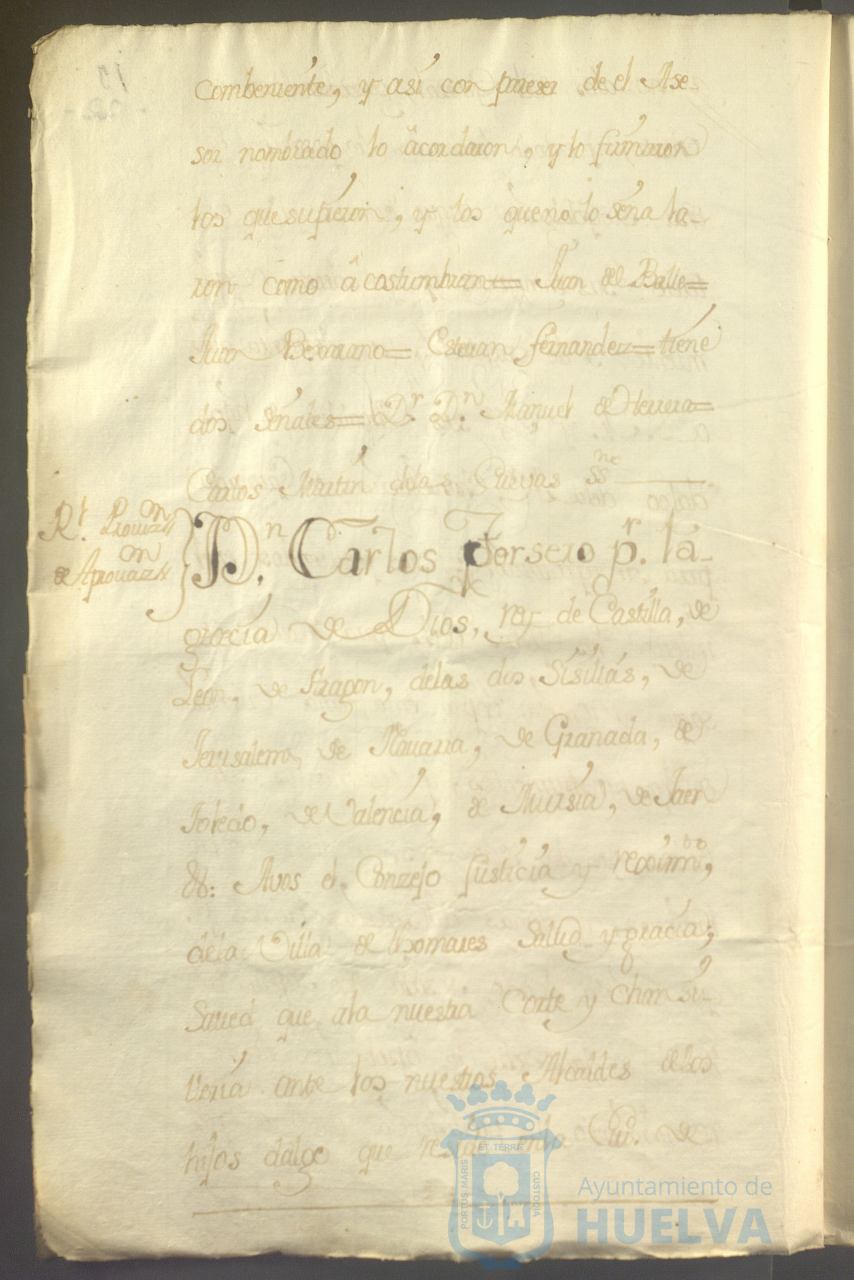 combeniente, y asi con pareser de el Ase-
sor nombrado lo âcordaron, y lo firmaron
los que supieron, y los que no lo seña la-
ron como â costumbran= Juan de Balle=
Juan Bexarano= Estevan fernandez= tiene
dos señales= Dr. Dn. Manuel de Herrera=
Carlos Martin de las Cuevas ssno
Rl. Provizn
de Aprovazn
Dn. Carlos Tersero pr. la
gracia de Dios, rey de Castilla, de
Leon, de Aragon, de las dos Sisilias, de
Jerusalem, de Navarra, de Granada, de
Toledo, de Valencia, de Mursia, de Jaen
&: Avos el Conzejo Justicia y reximto,
dela Villa de thomares Salud y gracia;
Saved que ala nuestra Corte y chansi-
lleria ante los nuestros Alcaldes delos
hijos dalgo que reside enla Ciu. de
PORTUS MARIS ET TERRÆ CUSTODIA
Ayuntamiento de
HUELVA